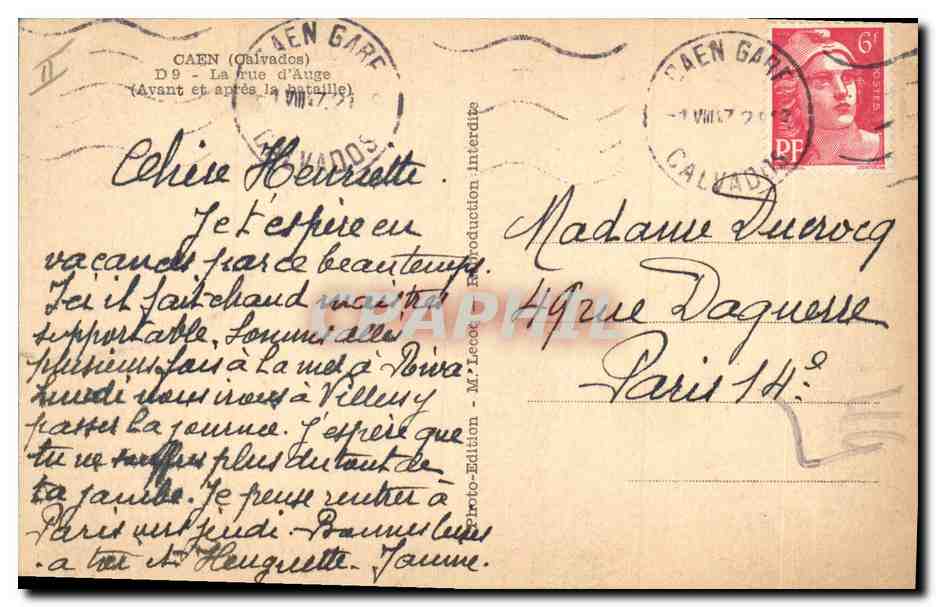 CAEN (Calvados)
D 9 - La rue d'Auge
(Avant et après la bataille)
CAEN GARE
CALVADOS
CAEN GARE
CALVADOS
6f
POSTES
RF
Chère Henriette.
Je t'espère en
vacances par ce beau temps.
Ici il fait chaud mais très
supportable. Sommes allés
plusieurs fois à la mer à Riva
Lundi nous irons à
passer la journée. J'espère que
tu ne souffres plus du tout de
ta jambe. Je pense rentrer à
Paris jeudi. Bonnes
a toi et
Photo-Edition - M. Lecoc Reproduction interdite
Madame Ducrocq
49 rue Daguerre
Paris 14e
CPAPHIL